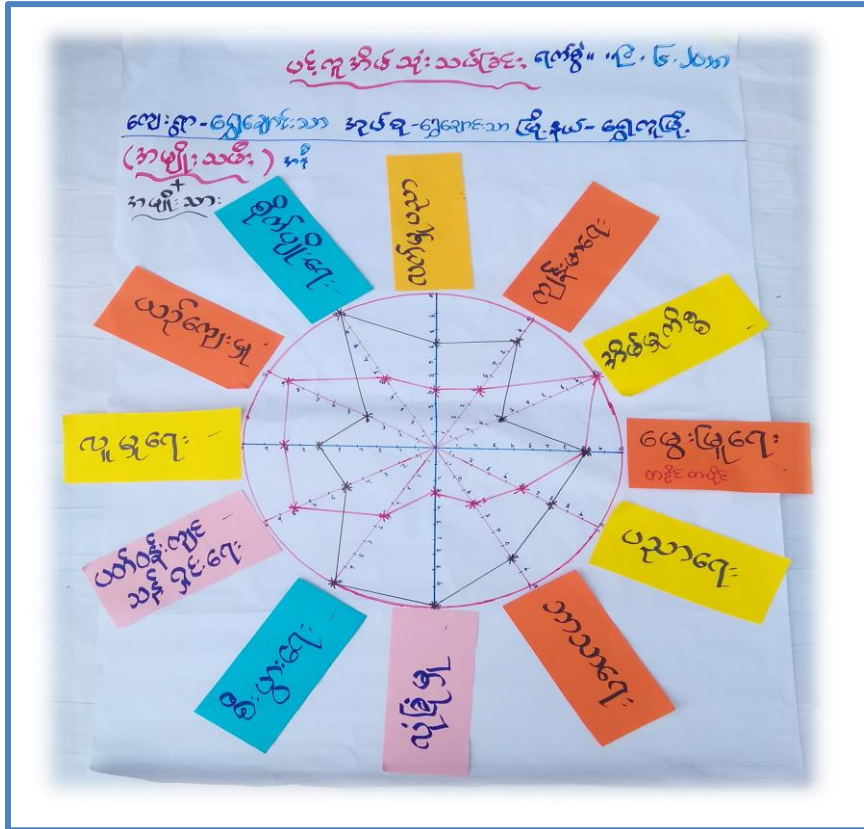 ပင့်ကူအိမ်သုံးသပ်ခြင်း ရက်စွဲ။
ကျေးရွာ-ရွှေချောင်းသာ အုပ်စု-ရွှေချောင်းသာ မြို့နယ်-ရွှေကူမြို့
(အမျိုးသမီး)
+
အမျိုးသား
လက်မှုပညာ
ကျန်းမာရေး
အိမ်မှုကိစ္စ
မွေးမြူရေး
တနိုင်တပိုင်
ပညာရေး
ဘာသာရေး
လုံခြုံမှု
စီးပွားရေး
ပတ်ဝန်းကျင်
သန့်ရှင်းရေး
လူမှုရေး
ယဉ်ကျေးမှု
စိုက်ပျိုးရေး